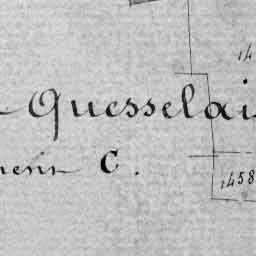 14
Quesselai
C.
1458